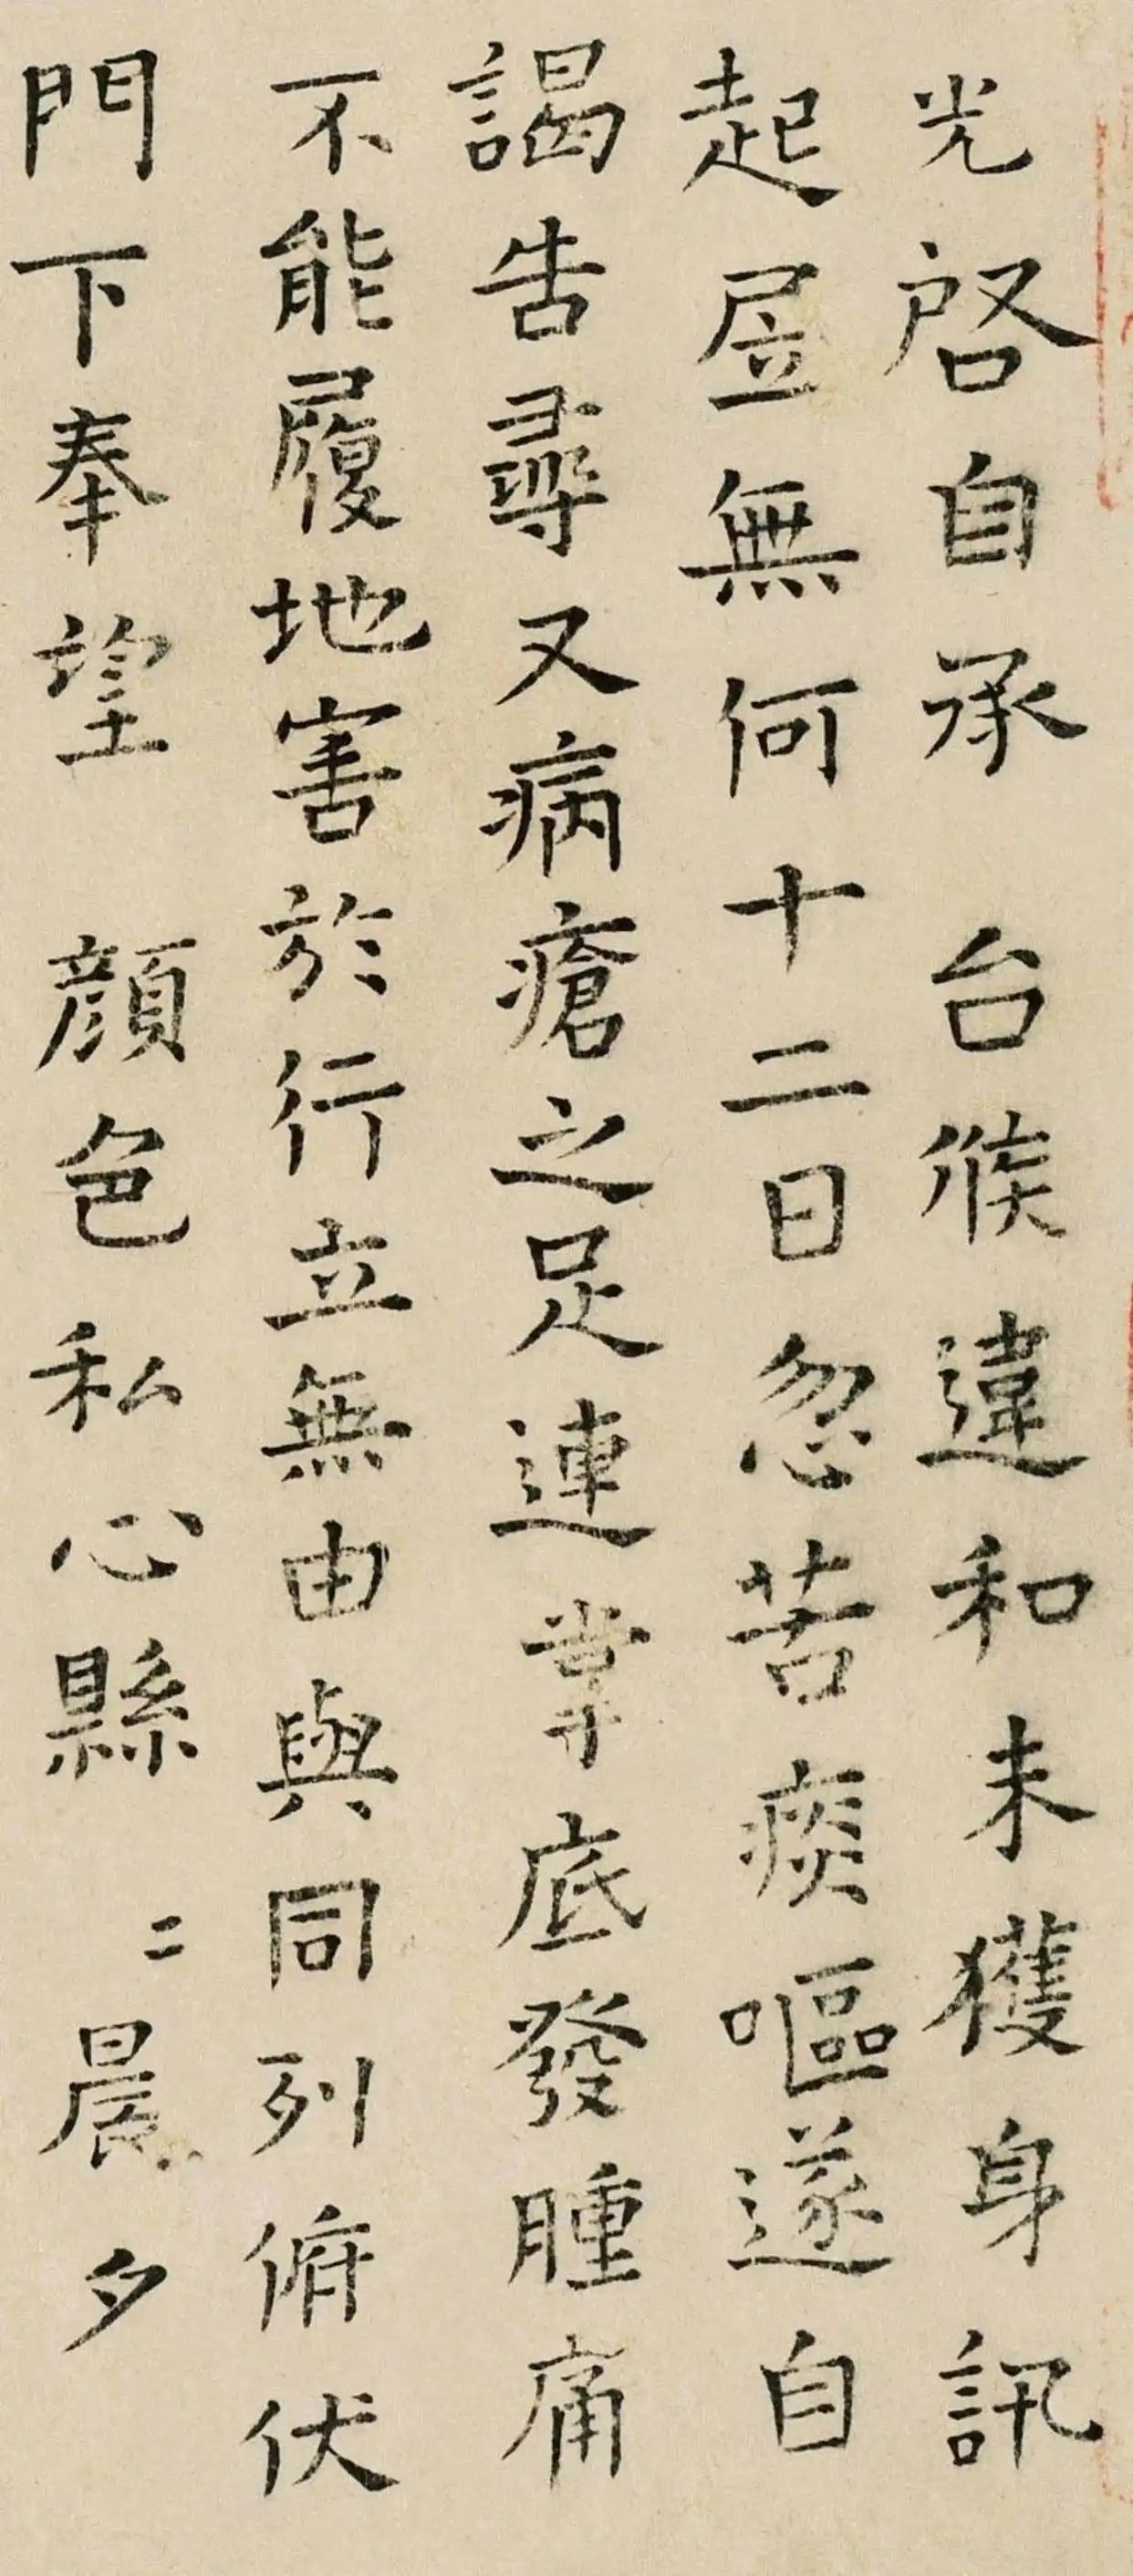 光啓自承台候違和未獲身訊
起居無何十二日忽苦痰嘔遂自
謁告尋又病瘡之足連掌底發腫痛
不能履地害於行立無由與同列俯伏
門下奉望顏色私心縣〻晨夕